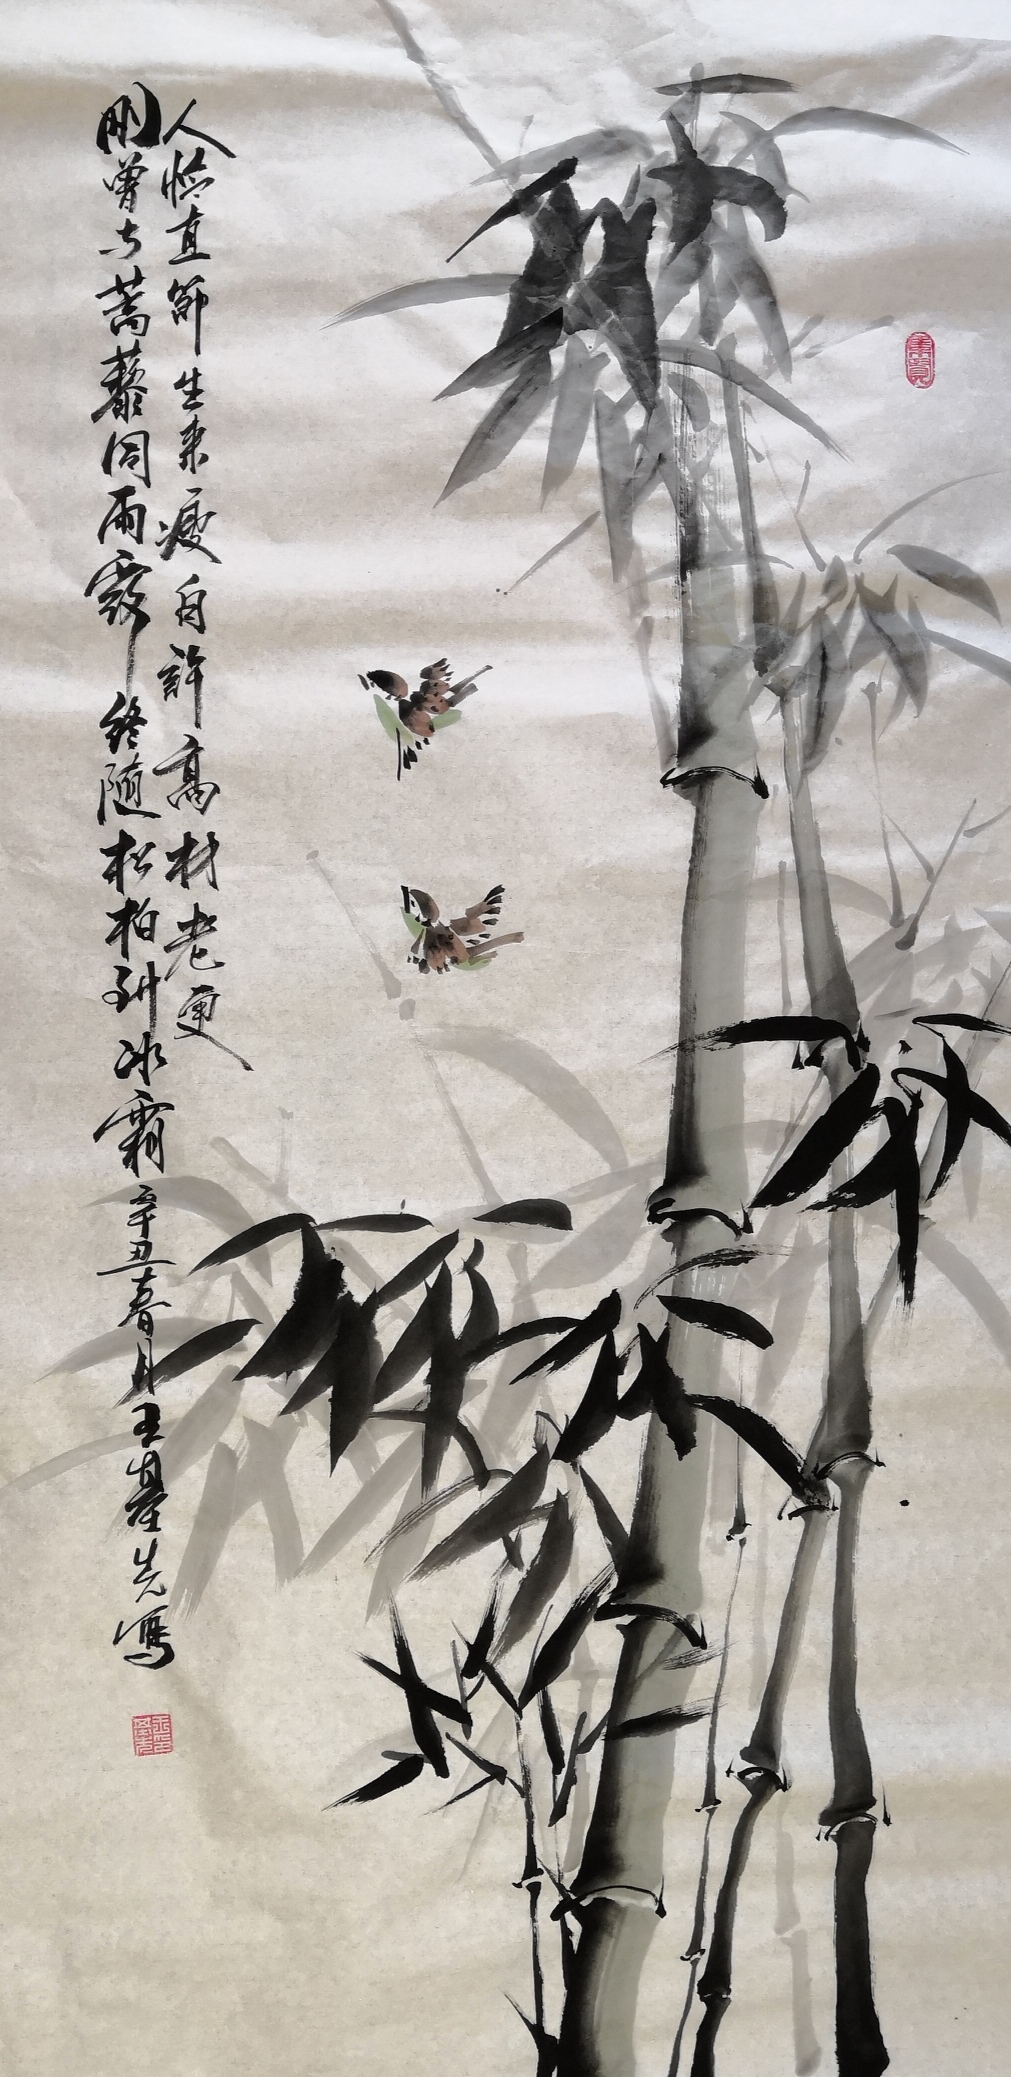 人怜直節生来瘦自許高材老更
剛曾与蒿藜同雨露終随松柏到冰霜辛丑春月王先寫